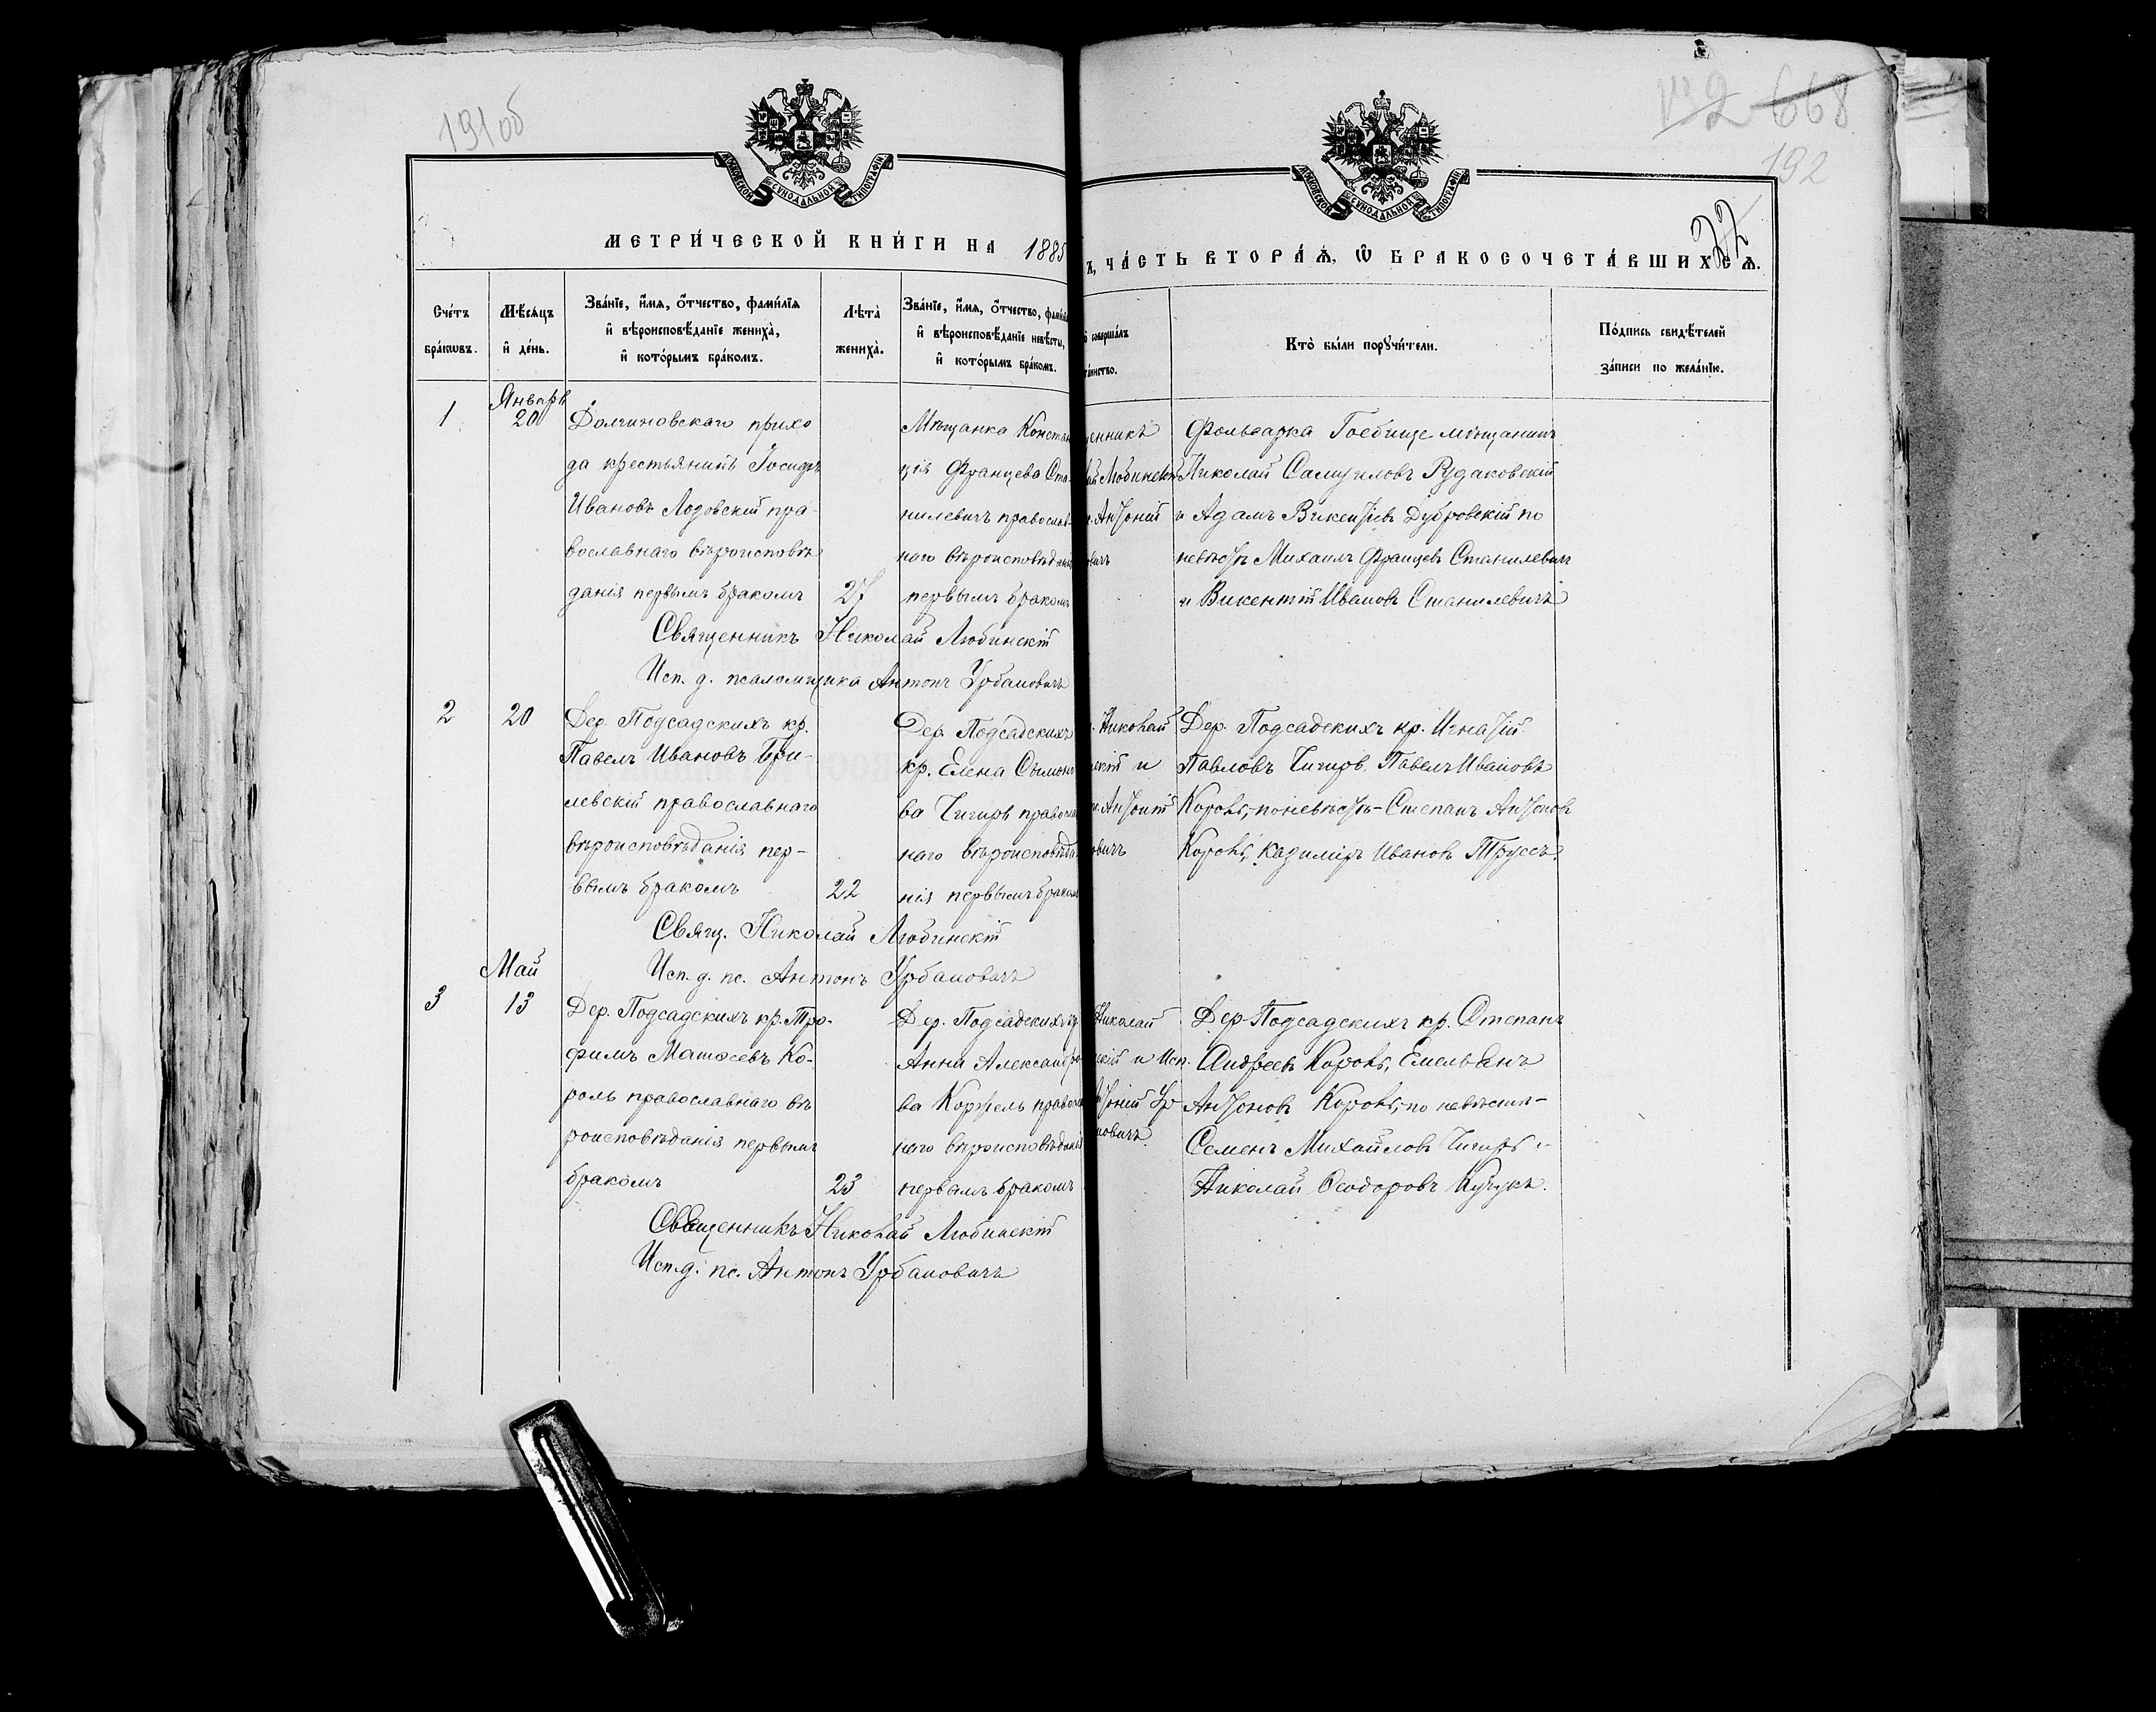 191об
№2 668
192
32
МОСКОВСКОЙ СѴНОДАЛЬНОЙ ТИПОГРАФІИ
МЕТРИ́ЧЕСКОЙ КНИ́ГИ НА 1885
МОСКОВСКОЙ СѴНОДАЛЬНОЙ ТИПОГРАФІИ
ЧА́СТЬ ВТОРА́Ѧ, Ѽ БРАКОСОЧЕТА́ВШИХСѦ.
Сче́тъ бра́кѡвъ.
Мѣ́сѧцъ и҆ де́нь.
Зва́нїе, и҆́мѧ, ѻ҆́тчество, фами́лїѧ
и҆ вѣроисповѣ́данїе жениха̀,
и҆ кото́рымъ бра́комъ.
Лѣта̀ жениха̀.
Зва́нїе, и҆́мѧ, ѻ҆́тчество, фами́лїѧ
и҆ вѣроисповѣ́данїе невѣ́сты,
и҆ кото́рымъ бра́комъ.
соверша́лъ
та́инство.
Кто̀ бы́ли порꙋчи́тели.
По́дпись свидѣ́телей
за́писи по жела́нїю.
1
Январь
20
Долгиновскаго прихо
да крестьянинъ Іосифъ
Ивановъ Лодовскій пра-
вославнаго вѣроисповѣ
данія первымъ бракомъ
27
Мѣщанка Констан
ція Францева Ста-
нилевичъ православ-
наго вѣроисповѣданія
первымъ бракомъ
щенникъ
ай Любинскій
Антоній
овичъ
Фольварка Гоебище мѣщанинъ
Николай Самуиловъ Рудаковскій
и Адамъ Викентіевъ Дубровскій по
невѣстѣ Михаилъ Францевъ Станилевичъ
и Викентій Ивановъ Станилевичъ
Священникъ Николай Любинскій
Исп. д. псаломщика Антонъ Урбановичъ
2
20
Дер. Подсадскихъ кр.
Павелъ Ивановъ Бри-
левскій православнаго
вѣроисповѣданія пер-
вымъ бракомъ
22
Дер. Подсадскихъ
кр. Елена Сымоно
ва Чигирь правосла
наго вѣроисповѣда
нія первымъ бракомъ
Николай
скій и
Антоній
овичъ
Дер. Подсадскихъ кр. Игнатій
Павловъ Чигирь, Павелъ Ивановъ
Король, по невѣстѣ - Степанъ Антоновъ
Король, Казиміръ Ивановъ Труссъ.
Свящ. Николай Любинскій
Исп. д. пс. Антонъ Урбановичъ
3
Май
13
Дер. Подсадскихъ кр. Тро-
фимъ Матѳеевъ Ко-
роль православнаго вѣ
роисповѣданія первымъ
бракомъ
23
Дер. Подсадскихъ кр
Анна Александро
ва Коржель правосла
наго вѣроисповѣданія
первымъ бракомъ
Николай
скій и Исп.
тоній Ур
новичъ.
Дер. Подсадскихъ кр. Степанъ
Андреевъ Король, Емельянъ
Антоновъ Король, по невѣстѣ -
Семенъ Михайловъ Чигирь и
Николай Ѳеодоровъ Кучукъ.
Священникъ Николай Любинскій
Исп. д. пс. Антонъ Урбановичъ